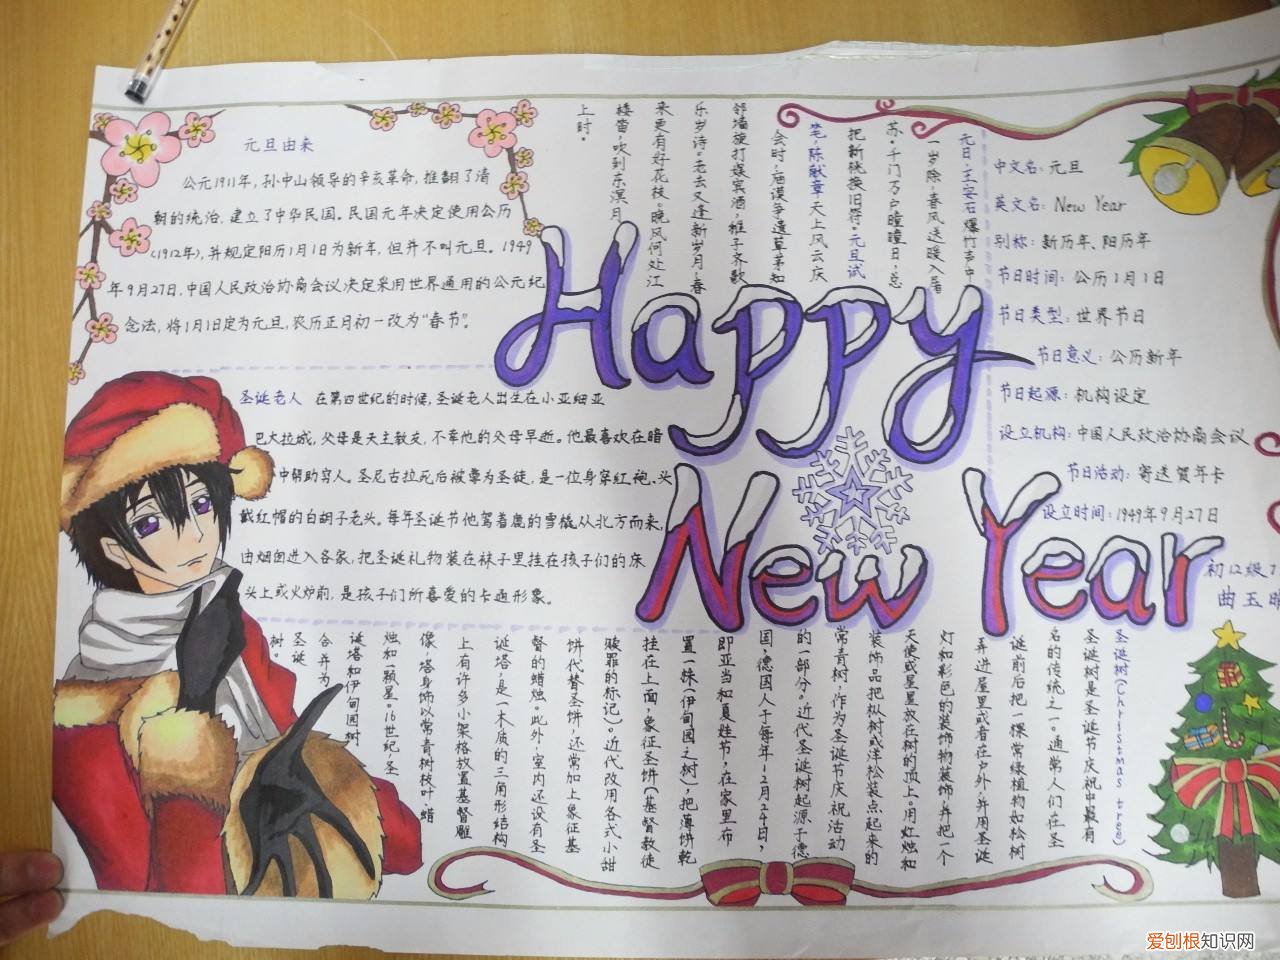 元旦由来
公元1911年,孙中山领导的辛亥革命,推翻了清
朝的统治,建立了中华民国。民国元年决定使用公历
(1912年),并规定阳历1月1日为新年,但并不叫元旦。1949
年9月27日,中国人民政治协商会议决定采用世界通用的公元纪
念法,将1月1日定为元旦,农历正月初一改为“春节”。
元日,王安石爆竹声中
一岁除,春风送暖入屠
苏。千门万户曈曈日,总
把新桃换旧符。元旦试
笔,陈献章天上风云庆
会时,庙谟争遣草茅知
邻墙旋打娱宾酒,稚子齐歌
乐岁诗。老去又逢新岁月,春
来更有好花枝。晚风何处江
楼笛,吹到东溟月
上时。
中文名:元旦
英文名:New Year
别称:新历年、阳历年
节日时间:公历1月1日
节日类型:世界节日
节日意义:公历新年
节日起源:机构设定
设立机构:中国人民政治协商会议
节日活动:寄送贺年卡
设立时间:1949年9月27日
Happy
New Year
圣诞老人 在第四世纪的时候,圣诞老人出生在小亚细亚
巴大拉城,父母是天主教友,不幸他的父母早逝。他最喜欢在暗
中帮助穷人。圣尼古拉死后被尊为圣徒,是一位身穿红袍、头
戴红帽的白胡子老头。每年圣诞节他驾着鹿的雪橇从北方而来,
由烟囱进入各家,把圣诞礼物装在袜子里挂在孩子们的床
头上或火炉前,是孩子们所喜爱的卡通形象。
初12级
曲玉
圣诞树(Christmas tree)
圣诞树是圣诞节庆祝中最有
名的传统之一。通常人们在圣
诞前后把一棵常绿植物如松树
弄进屋里或者在户外,并用圣诞
灯和彩色的装饰物装饰,并把一个
天使或星星放在树的顶上。用灯烛和
装饰品把枞树或洋松装点起来的
常青树,作为圣诞节庆祝活动
的一部分。近代圣诞树起源于德
国,德国人于每年12月24日,
即亚当和夏娃节,在家里布
置一株(伊甸园之树),把薄饼乾
挂在上面,象征圣饼(基督教徒
骏罪的标记)。近代改用各式小甜
饼代替圣饼,还常加上象征基
督的蜡烛。此外,室内还设有圣
诞塔,是一木质的三角形结构
上有许多小架格放置基督雕
像,塔身饰以常青树枝叶、蜡
烛和一颗星。16世纪,圣
诞塔和伊甸园树
合并为
圣诞
树。
爱刨根知识网